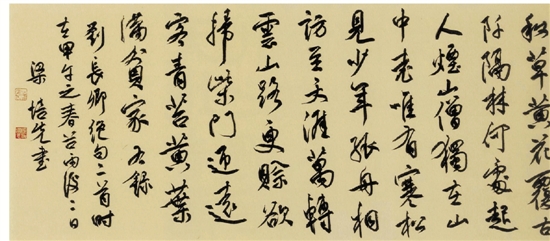 秋草黄花覆古
阡隔林何處起
人煙山僧獨在山
中老唯有寒松
見少年孤舟相
訪至天涯萬轉
雲山路更賒欲
掃柴門迎遠
客青苔黄葉
滿貧家 右錄
劉長卿絕句二首時
在甲午之春谷雨後二日
梁培先書